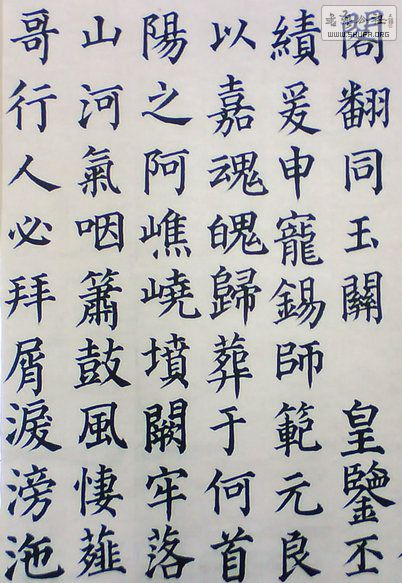 翻同玉關 皇鑒丕
績爰申寵錫師範元良
以嘉魂魄歸葬于何首
陽之阿嶕嶢墳闕牢落
山河氣咽簫鼓風悽薤
哥行人必拜屑淚滂沲
WWW.SHUFA.ORG